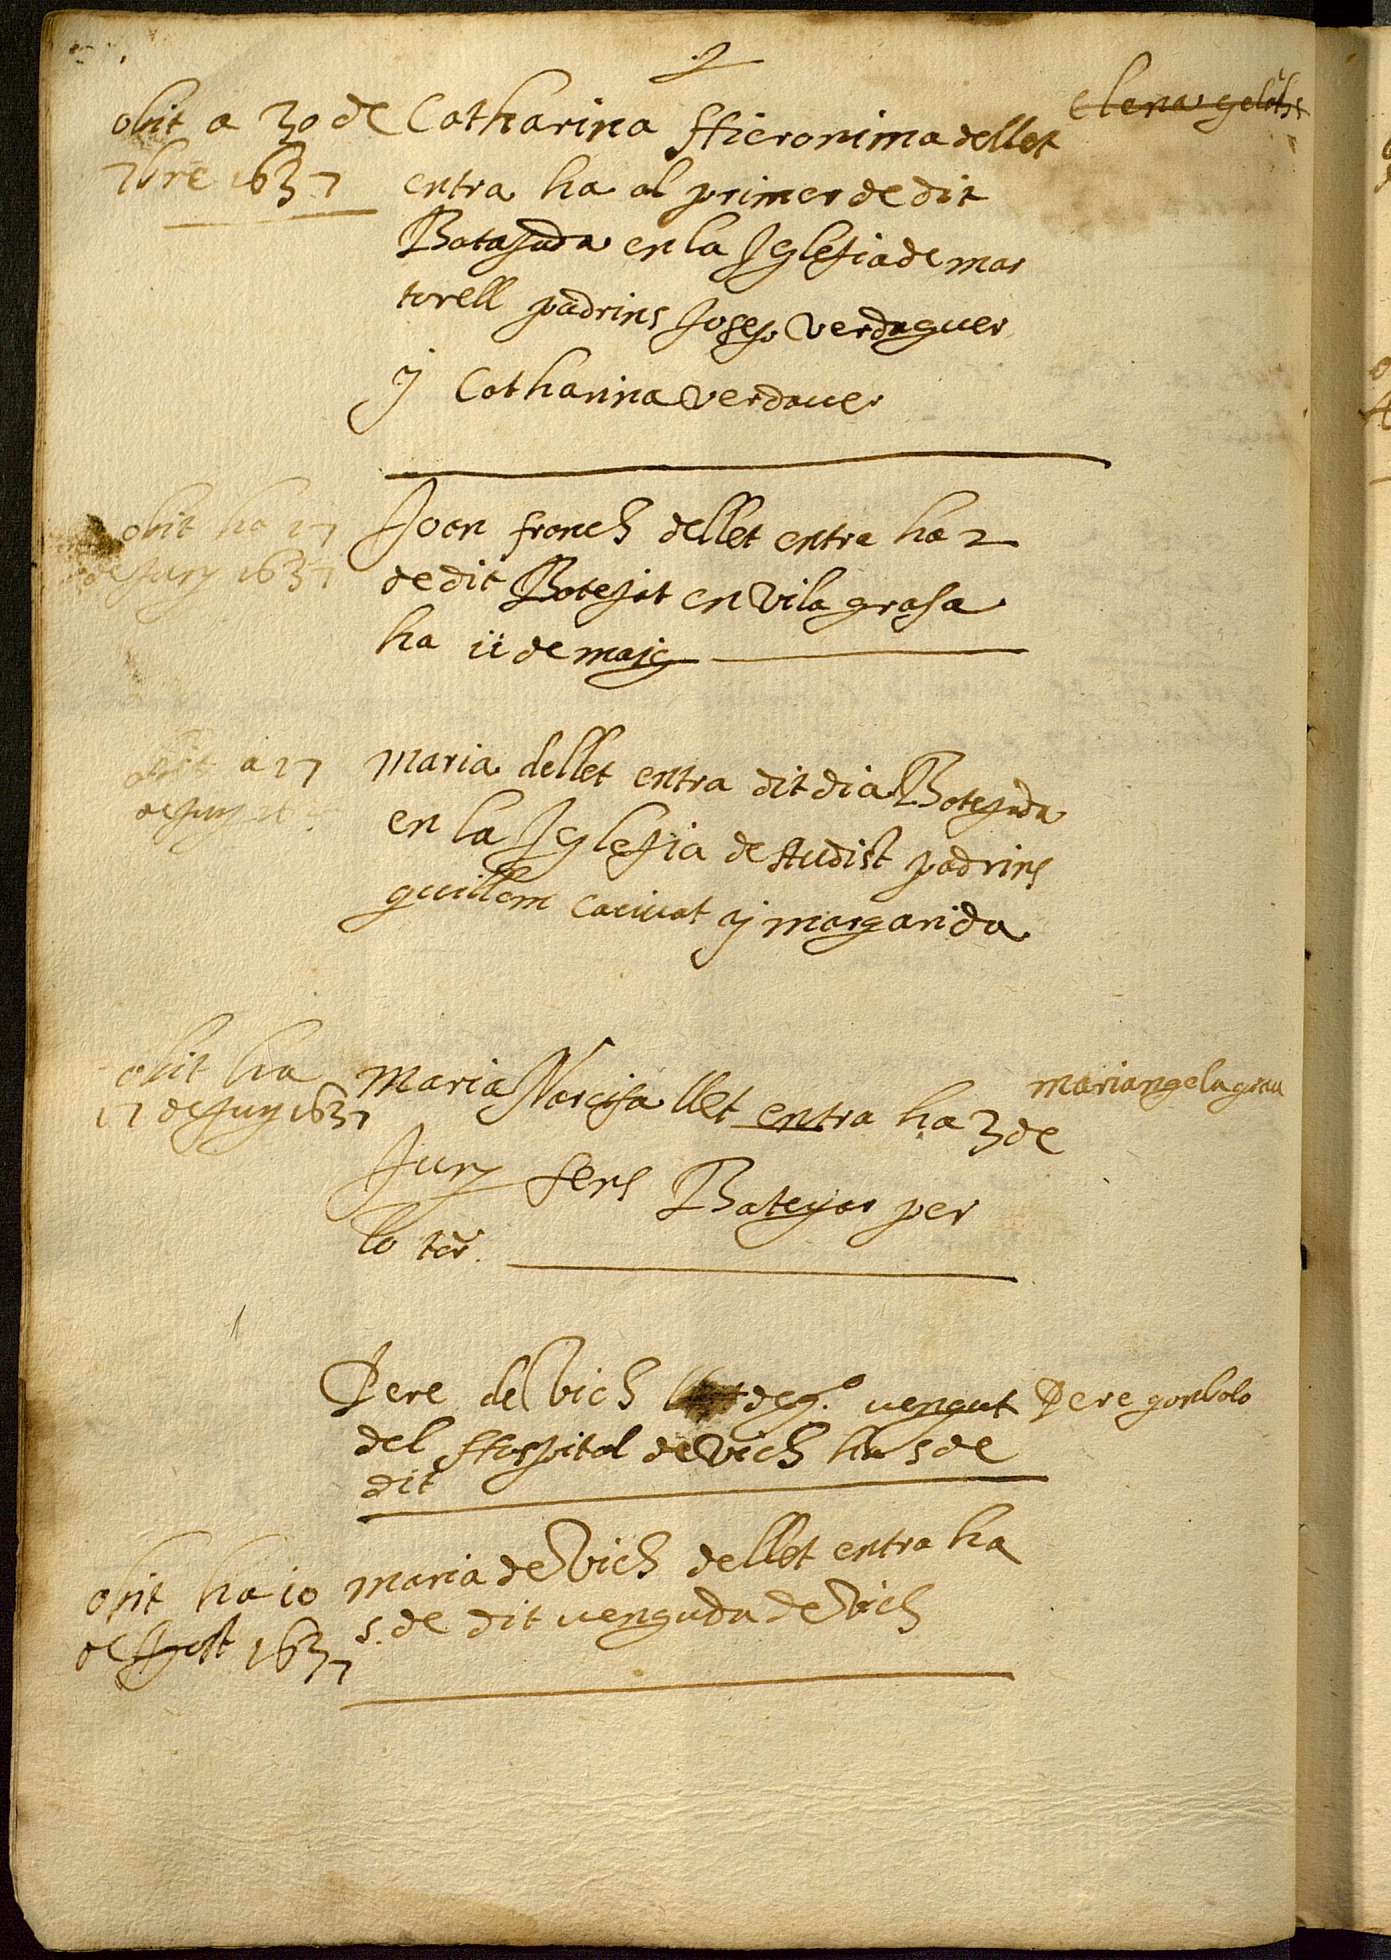 obit a 30 de
7bre 1637
Catharina Hieronima de llet
entra ha al primer de dit
Batajada en la Iglesia de mar
torell padrins Josep Verdaguer
y Catharina verdauer
elena
obit ha 17
de Juny 1637
Joan franch de llet entra ha 2
de dit Batejat en Vila grasa
ha ii de maig
obit a 17
de Juny
maria de llet entra dit dia Batejada
en la Iglesia de studist padrins
guillem y margarida
obit ha
17 de Juny 1637
maria Narcisa llet entra ha 3 de
Juny sens Batejar per
lo tor.
mariangela grau
Pere de Vich de g.º vengut
del Hospital de Vich ha 5 de
dit
Pere gonbolo
obit ha 10
de Agost 1637
maria de Vich de llet entra ha
5. de dit venguda de Vich